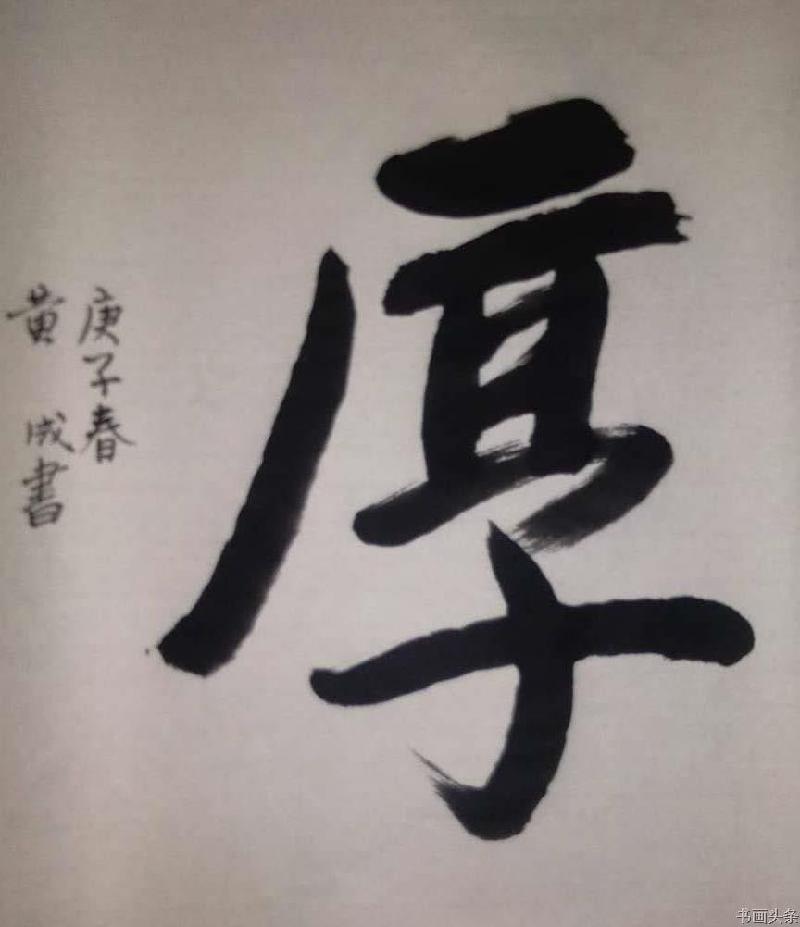 厚
庚子春
黄成書
书画头条